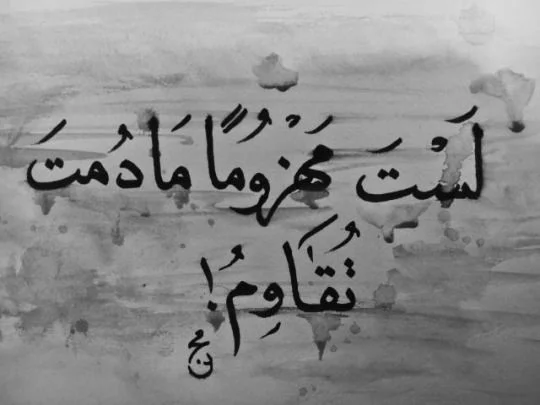 لَسْتَ مَهْزُومًا مَا دُمتَ
تُقَاوِمُ!